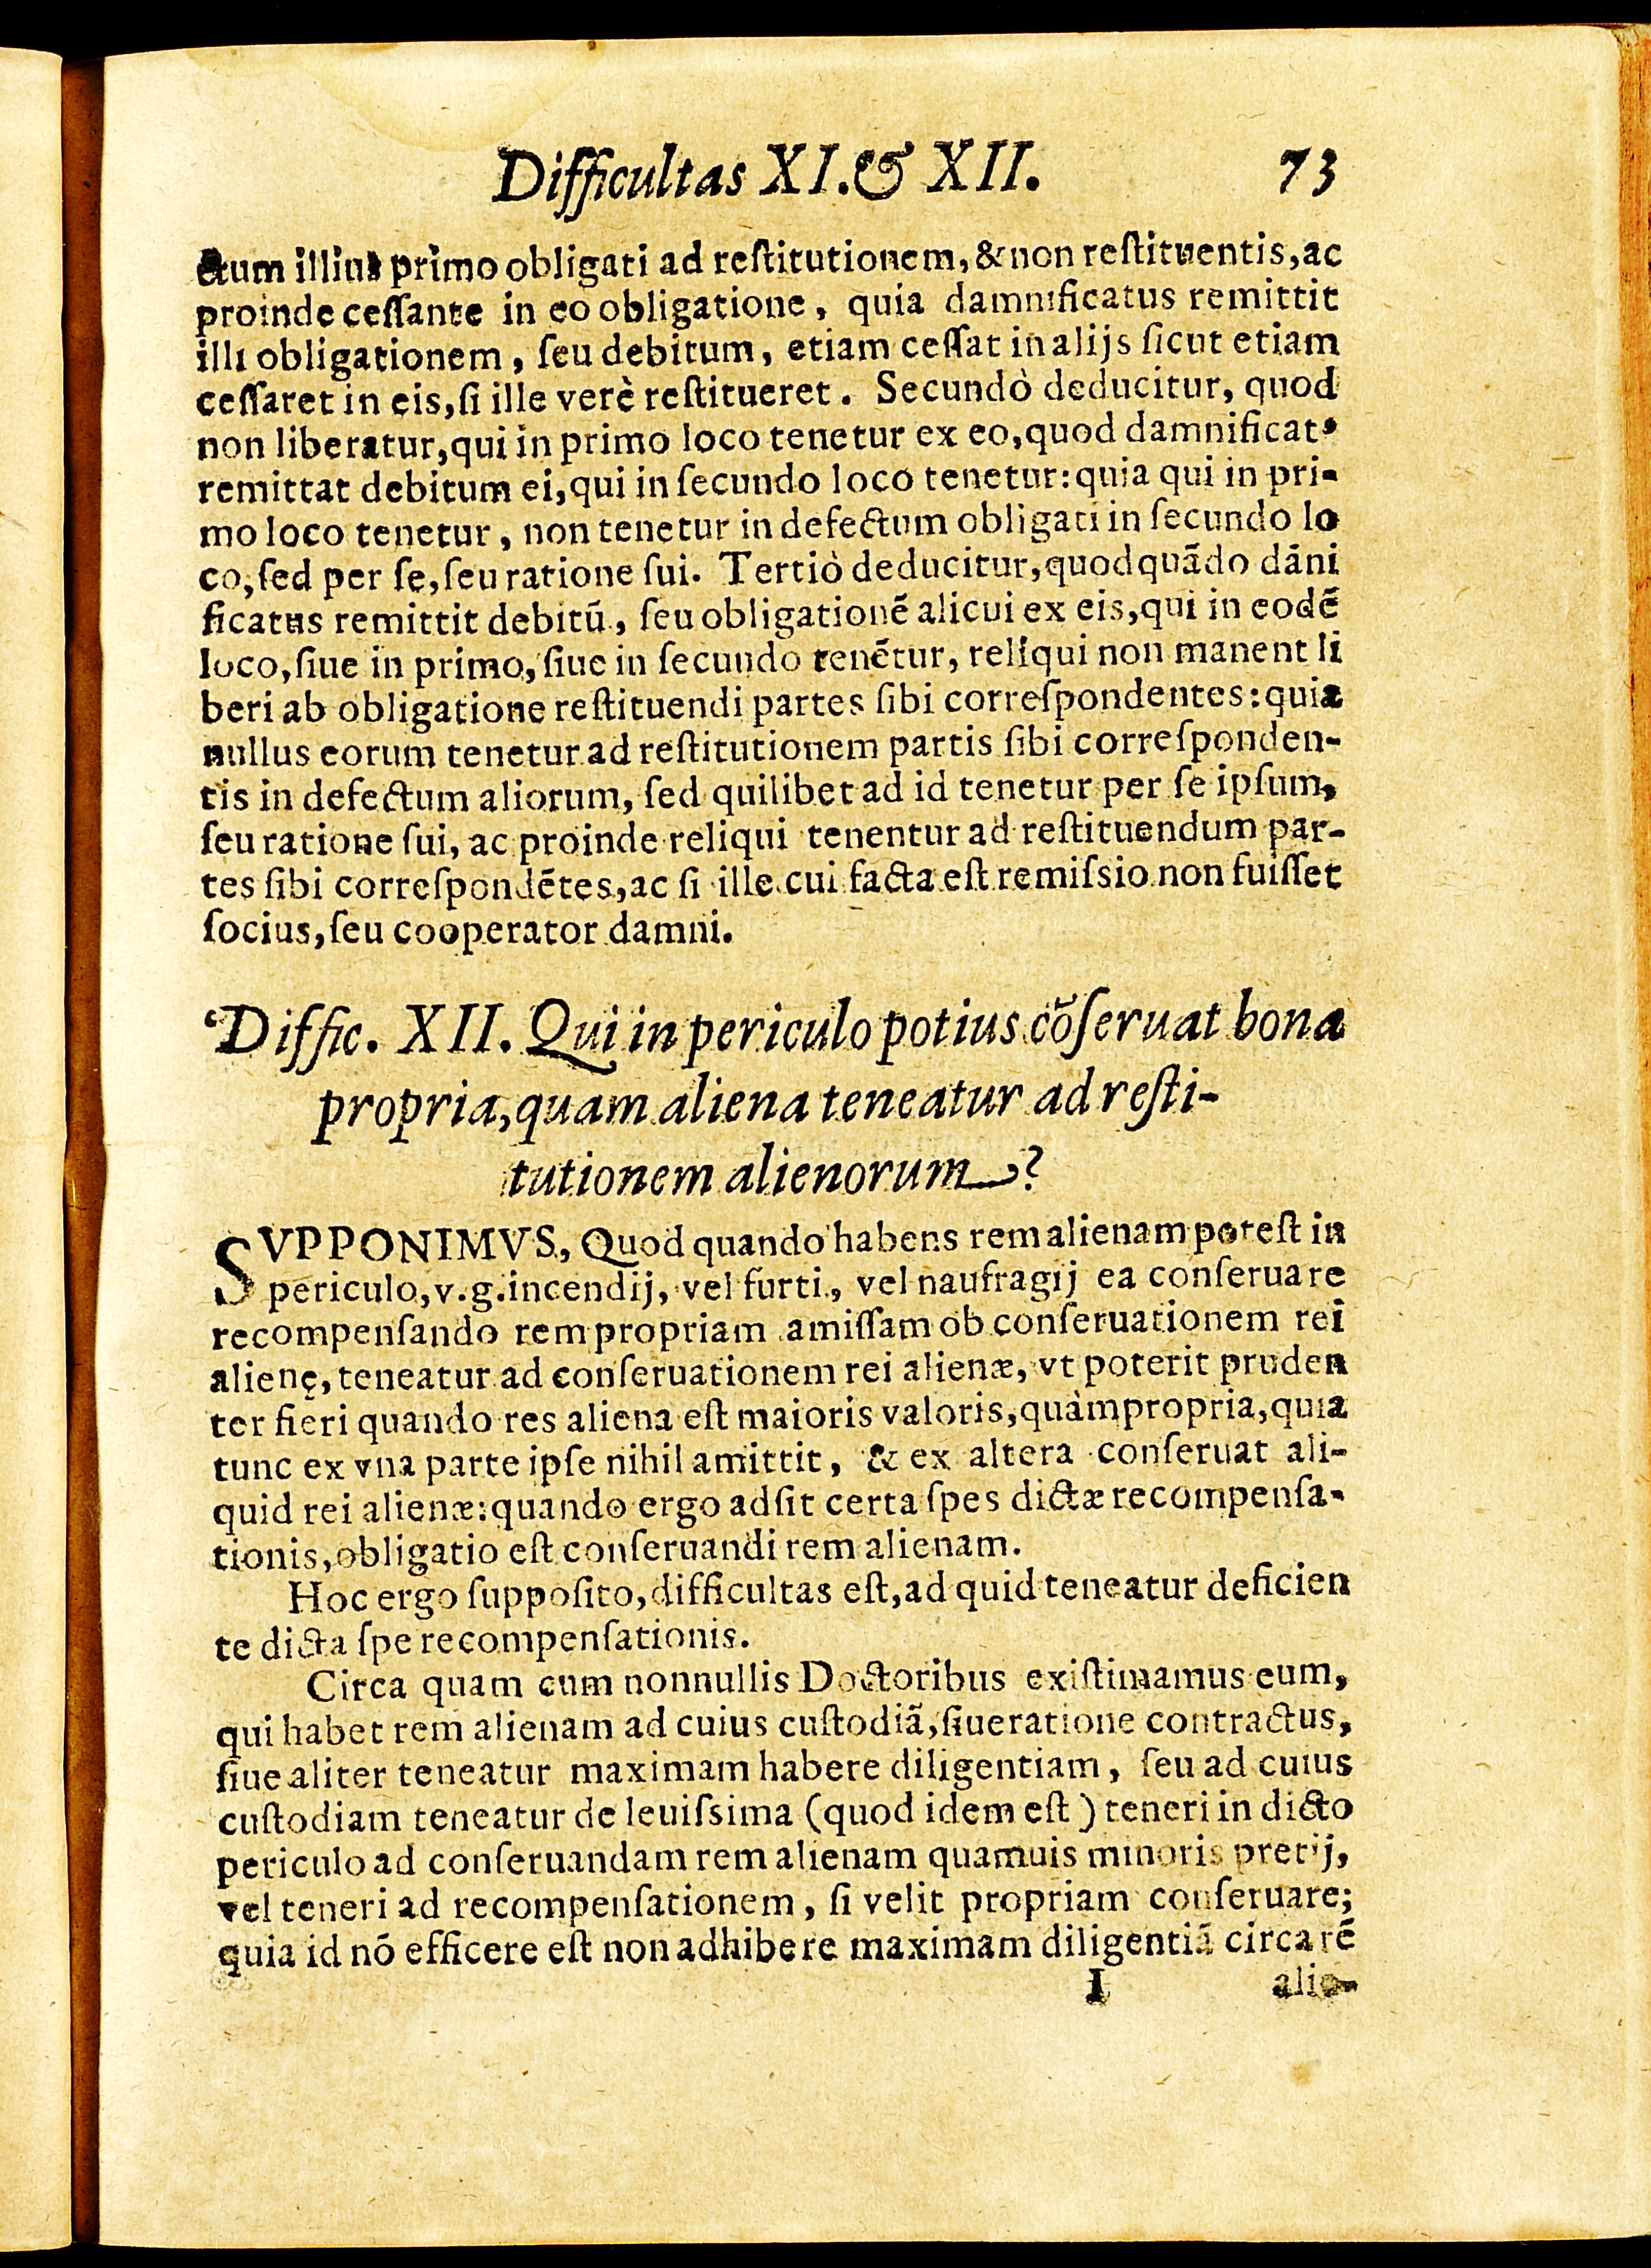 Difficultas XI. & XII. 73
ctum illius primo obligati ad reſtitutionem, & non reſtituentis, ac
proinde ceſſante in eo obligatione, quia damnificatus remittit
illi obligationem, ſeu debitum, etiam ceſſat in alijs ſicut etiam
ceſſaret in eis, ſi ille verè reſtitueret. Secundò deducitur, quod
non liberatur, qui in primo loco tenetur ex eo, quod damnificatꝰ
remittat debitum ei, qui in ſecundo loco tenetur: quia qui in pri-
mo loco tenetur, non tenetur in defectum obligati in ſecundo lo
co, ſed per ſe, ſeu ratione ſui. Tertiò deducitur, quod quãdo dãni
ficatus remittit debitũ, ſeu obligationẽ alicui ex eis, qui in eodẽ
loco, ſiue in primo, ſiue in ſecundo tenẽtur, reliqui non manent li
beri ab obligatione reſtituendi partes ſibi correſpondentes: quia
nullus eorum tenetur ad reſtitutionem partis ſibi correſponden-
tis in defectum aliorum, ſed quilibet ad id tenetur per ſe ipſum,
ſeu ratione ſui, ac proinde reliqui tenentur ad reſtituendum par-
tes ſibi correſpondẽtes, ac ſi ille cui facta eſt remiſsio non fuiſſet
ſocius, ſeu cooperator damni.
Diffic. XII. Qui in periculo potius cõſeruat bona
propria, quam aliena teneatur ad reſti-
tutionem alienorum?
SVPPONIMVS, Quod quando habens rem alienam poteſt in
periculo, v.g. incendij, vel furti, vel naufragij ea conſeruare
recompenſando rem propriam amiſſam ob conſeruationem rei
alienę, teneatur ad conſeruationem rei alienæ, vt poterit pruden
ter fieri quando res aliena eſt maioris valoris, quàm propria, quia
tunc ex vna parte ipſe nihil amittit, & ex altera conſeruat ali-
quid rei alienæ: quando ergo adſit certa ſpes dictæ recompenſa-
tionis, obligatio eſt conſeruandi rem alienam.
Hoc ergo ſuppoſito, difficultas eſt, ad quid teneatur deficien
te dicta ſpe recompenſationis.
Circa quam cum nonnullis Doctoribus exiſtimamus eum,
qui habet rem alienam ad cuius cuſtodiã, ſiue ratione contractus,
ſiue aliter teneatur maximam habere diligentiam, ſeu ad cuius
cuſtodiam teneatur de leuiſsima (quod idem eſt) teneri in dicto
periculo ad conſeruandam rem alienam quamuis minoris pretij,
vel teneri ad recompenſationem, ſi velit propriam conſeruare;
quia id nõ efficere eſt non adhibere maximam diligentiã circa rẽ
I alie-